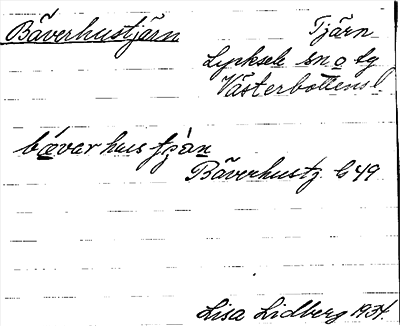 Bäverhustjärn Tjärn
Lycksele sn o tg
Västerbottens l.
bǽvarhus tján
Bäverhustj. C 49
Lisa Lidberg 1934.